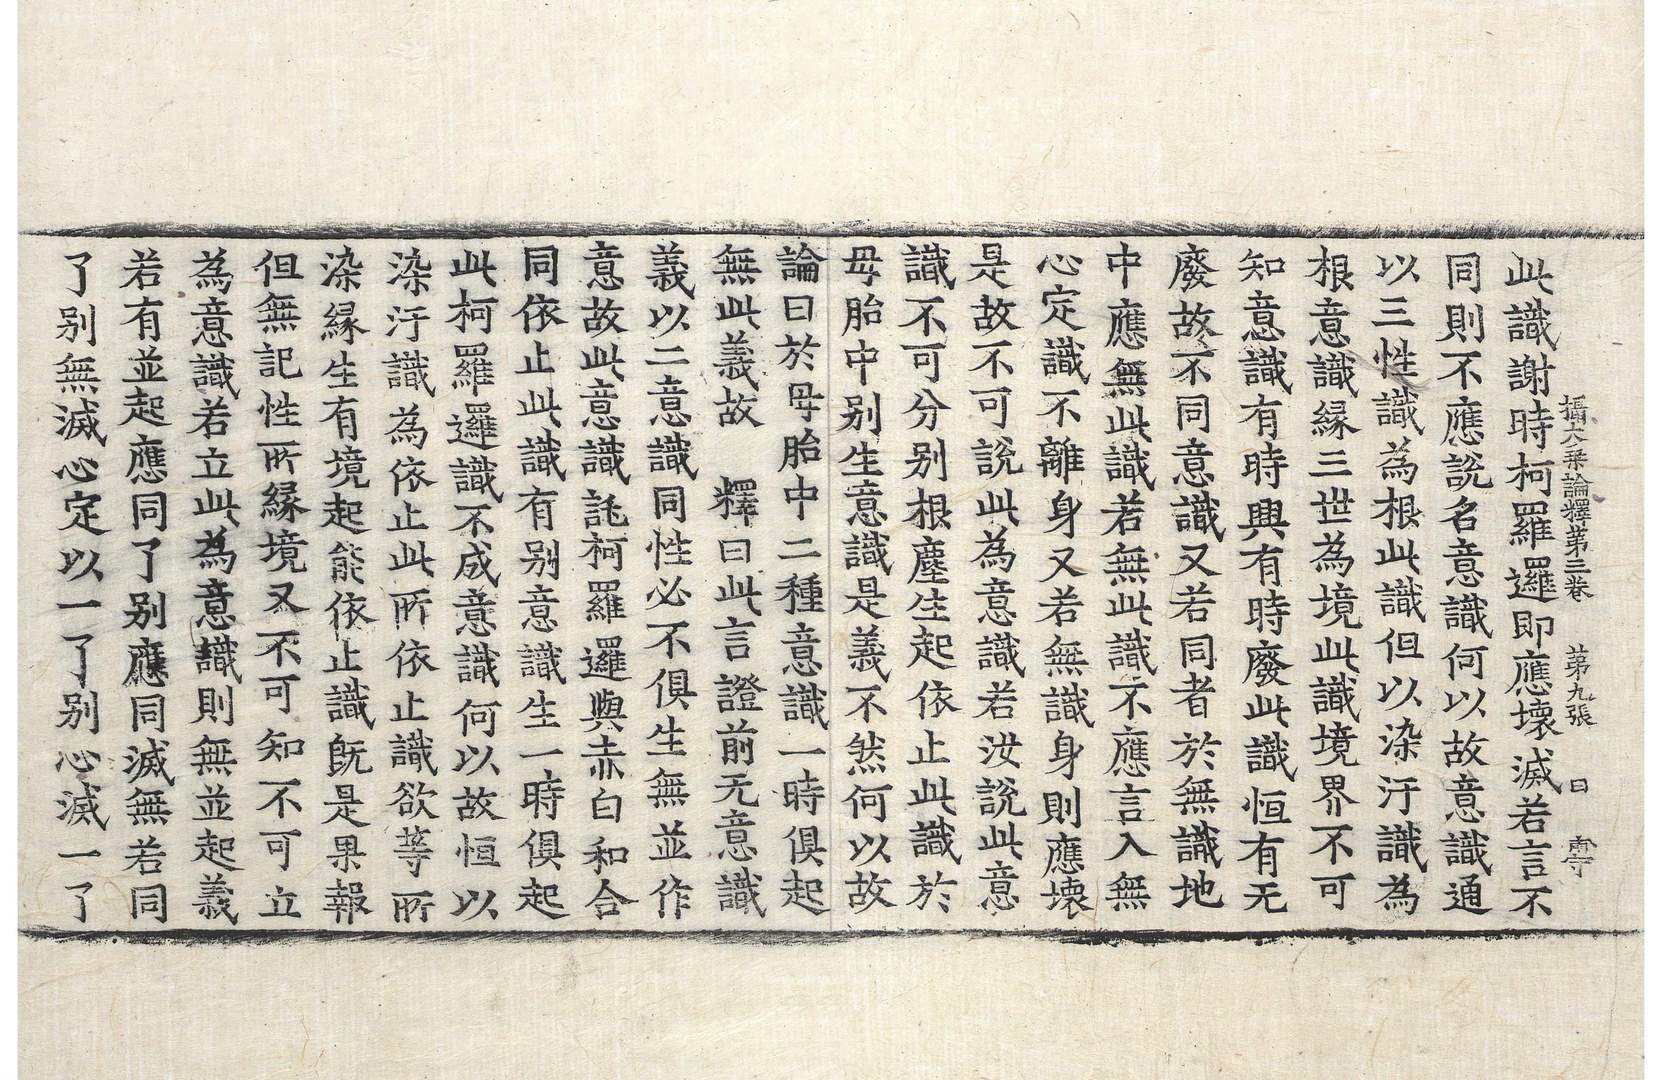 攝大乗論釋第三卷　第九張　日
此識謝時柯羅邏即應壞滅若言不
同則不應說名意識何以故意識通
以三性識為根此識但以染汙識為
根意識緣三世為境此識境界不可
知意識有時興有時廢此識恒有无
廢故不同意識又若同者於無識地
中應無此識若無此識不應言入無
心定識不離身又若無識身則應壞
是故不可說此為意識若汝說此意
識不可分別根塵生起依止此識於
母胎中別生意識是義不然何以故
論曰於母胎中二種意識一時俱起
無此義故　釋曰此言證前无意識
義以二意識同性必不俱生無並作
意故此意識託柯羅邏與赤白和合
同依止此識有別意識生一時俱起
此柯羅邏識不成意識何以故恒以
染汙識為依止此所依止識欲等所
染緣生有境起能依止識既是果報
但無記性所緣境又不可知不可立
為意識若立此為意識則無並起義
若有並起應同了別應同滅無若同
了別無滅心定以一了別心滅一了